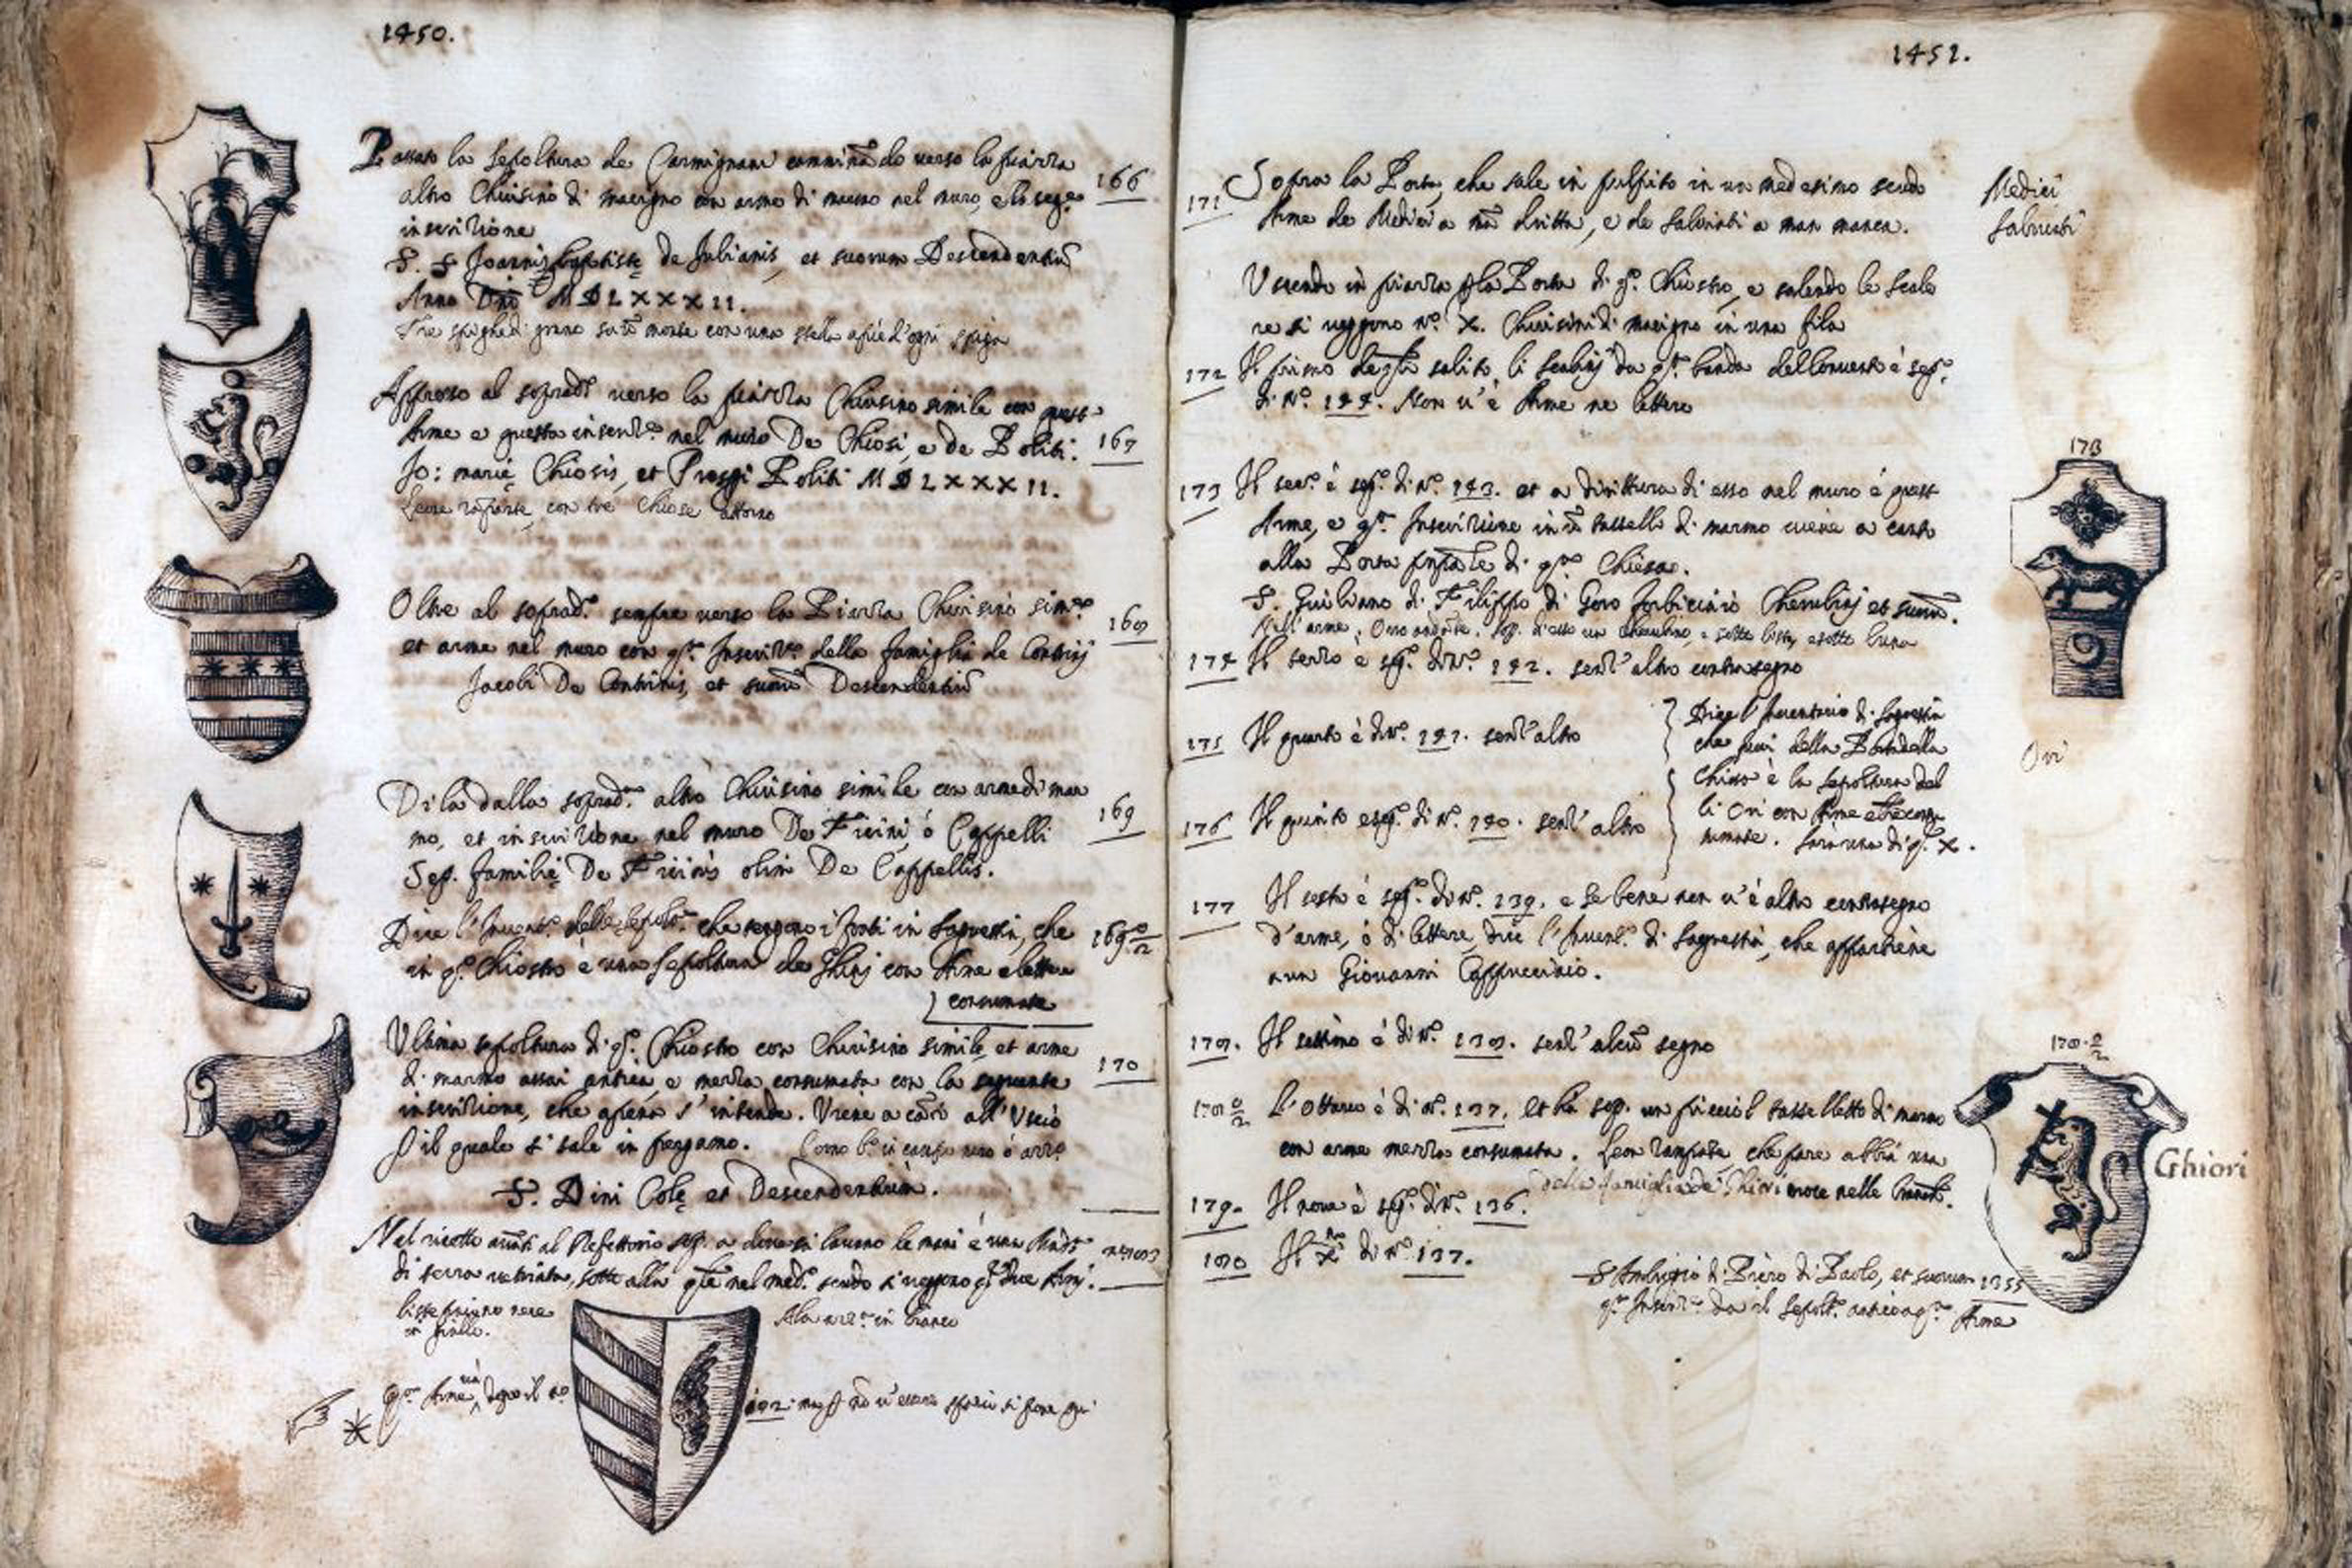 1450.
Passato la sepoltura de Carmignani cammina do verso la piazza
altro Chiusino di macigno con arme di marmo nel muro, e la seg.e
inscrizione
166
S. Joannis baptistę de Julianis, et suorum Descendentiū
Anno Dni MDLXXXII.
Tre spighe di grano con una stella a piè d'ogni spiga
Appresso al soprad.o verso la piazza Chiusino simile con quest
Arme e questa inscriz.e nel muro De Chiosi, e de Politi.
167
Jo: marię Chiosis, et Prosp̃i Politi MDLXXXII.
Leone rāpante, con tre Chiose attorno
Oltre al soprad.o sempre verso la Piazza Chiusino sim.e
168
et arme nel muro con q.a Inscriz.e della famiglia de Contrinj
Jacobi De Contrinis, et suorū Descendentiū
Di là dalla soprad.a altro Chiusino simile con arme di mar
mo, et inscrizione nel muro De Ficini ò Cappelli
169
Sep. familię De Ficinis olim De Cappellis.
Dice l'Invent.o delle sepolt.e che tengono i frati in sagrestia, che
169 2/2
in q.o Chiostro è una sepoltura de Ghinj con Arme e lettere
consumate
Ultima sepoltura di q.o Chiostro con Chiusino simile, et arme
di marmo assai antica, e mezza consumata con la seguente
170
inscrizione, che apena s'intende. Viene a cāto all'Uscio
p il quale si sale in pergamo. Corno
S. Dini Colę et Descendentium.
Nel ricetto avāti al Refettorio dove si lavano le mani è una
di terra vetriata, sotto alla q̃le nel med.o scudo si veggono q.e due Armj.
liste
in giallo.
Ala in bianco
q.a Arme và dopo il n.o
192. si pone qui
1451.
171
Sopra la Porta, che sale in pulpito in un medesimo scudo
Arme de Medici a mā dritta, e de Salviati a man manca.
Medici
Salviati
Uscendo in piazza p la Porta di q.o Chiostro, e salendo le scale
re si veggono n.o X. Chiusini di macigno in una fila
172
Il primo degli salito li scalinj da q.a banda dell'ovest è seg.o
di N.o 144. Non v'è Arme ne lettere
173
Il sec.o è seg.o di N.o 143. et a dirittura di esso nel muro è quest
Arme, e q.a Inscrizione in ū tassello di marmo viene a canto
alla Porta prīpale di q.a Chiesa.
173
S. Giuliano di Filippo di Goro forbiciaio Cherubinj et suorū.
Nell'arme, Orso andāte, sop. d'esso un Cherubino, e sotto lista, e sotto luna
174
Il terzo è seg.o di N.o 142. senz'altro contrasegno
175
Il quarto è di N.o 141. senz'altro
176
Il quinto è seg.o di N.o 140. senz'altro
Dice l'Inventario di Sagrestia
che fuori della Porta della
Chiesa è la sepoltura del
li Ori con Arme e lre consu
mate. Sarà una di q.e X.
Ori
177
Il sesto è seg.o di N.o 139. e se bene non v'è altro contrasegno
d'arme, ò di lettere, dice l'Invent.o di Sagrestia, che appartiene
a un Giovanni Cappuccinio.
178.
Il settimo è di N.o 138. senz'alcū segno
178 2/2
L'ottavo è di N.o 137. et ha sop. un picciol tasselletto di marmo
con arme mezza consumata. Leon rampāte che pare abbia una
della famiglia de Ghiori croce nelle branch.
178. 2/2
Ghiori
179.
Il nono è seg.o di N.o 136.
180
Il X.mo di N.o 137.
S. Ambrogio di Piero di Paolo, et suorum 1355
q.a Inscriz.e Sepolt. antico a q.a Arme